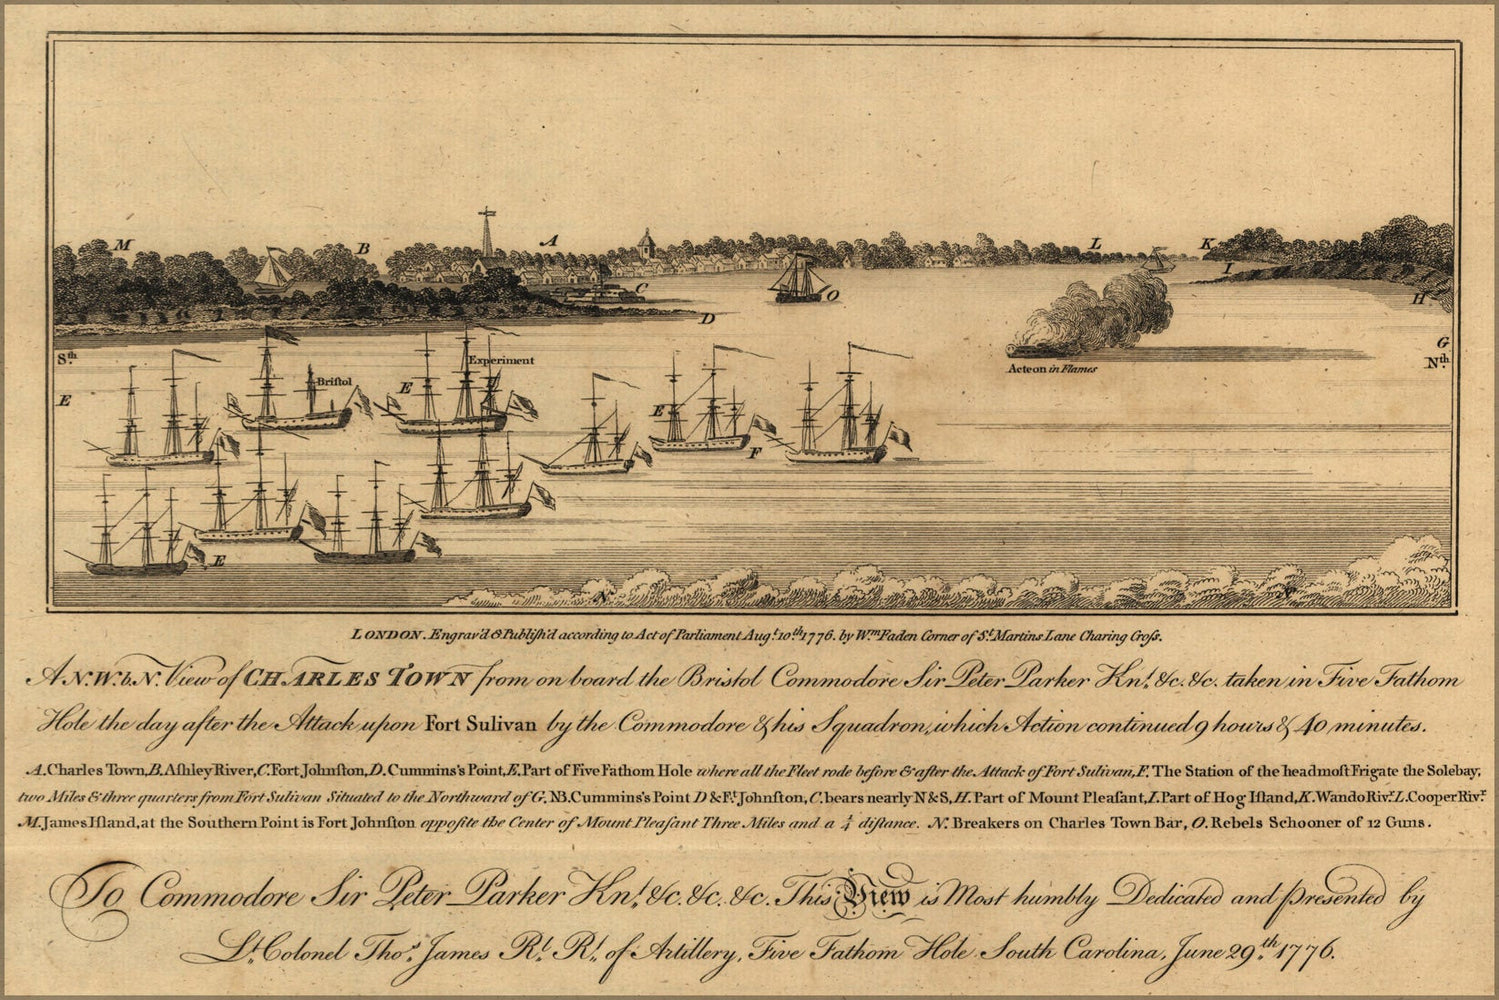 M
B
A
L
K
I
C
O
H
D
G
Sth
Nth
Experiment
Acteon in Flames
Briſtol
E
E
E
E
F
N
LONDON. Engrav'd & Publiſh'd according to Act of Parliament Augt. 10th 1776. by Wm. Faden Corner of St. Martins Lane Charing Croſs.
A N.W.b.N. View of CHARLES TOWN from on board the Bristol Commodore Sir Peter Parker Knt. &c. &c. taken in Five Fathom
Hole the day after the Attack upon Fort Sulivan by the Commodore & his Squadron, which Action continued 9 hours & 40 minutes.
A. Charles Town, B. Aſhley River, C. Fort Johnſton, D. Cummins's Point, E. Part of Five Fathom Hole where all the Fleet rode before & after the Attack of Fort Sulivan, F. The Station of the headmoſt Frigate the Solebay,
two Miles & three quarters from Fort Sulivan Situated to the Northward of G. NB. Cummins's Point D & Ft. Johnſton, C. bears nearly N & S, H. Part of Mount Pleaſant, I. Part of Hog Iſland, K. Wando Rivr. L. Cooper Rivr.
M. James Iſland, at the Southern Point is Fort Johnſton oppoſite the Center of Mount Pleaſant Three Miles and a ¼ diſtance. N. Breakers on Charles Town Bar, O. Rebels Schooner of 12 Guns.
To Commodore Sir Peter Parker Knt. &c. &c. &c. This View is Most humbly Dedicated and presented by
Lt. Colonel Thos. James Rl. Rt. of Artillery, Five Fathom Hole South Carolina, June 29th. 1776.